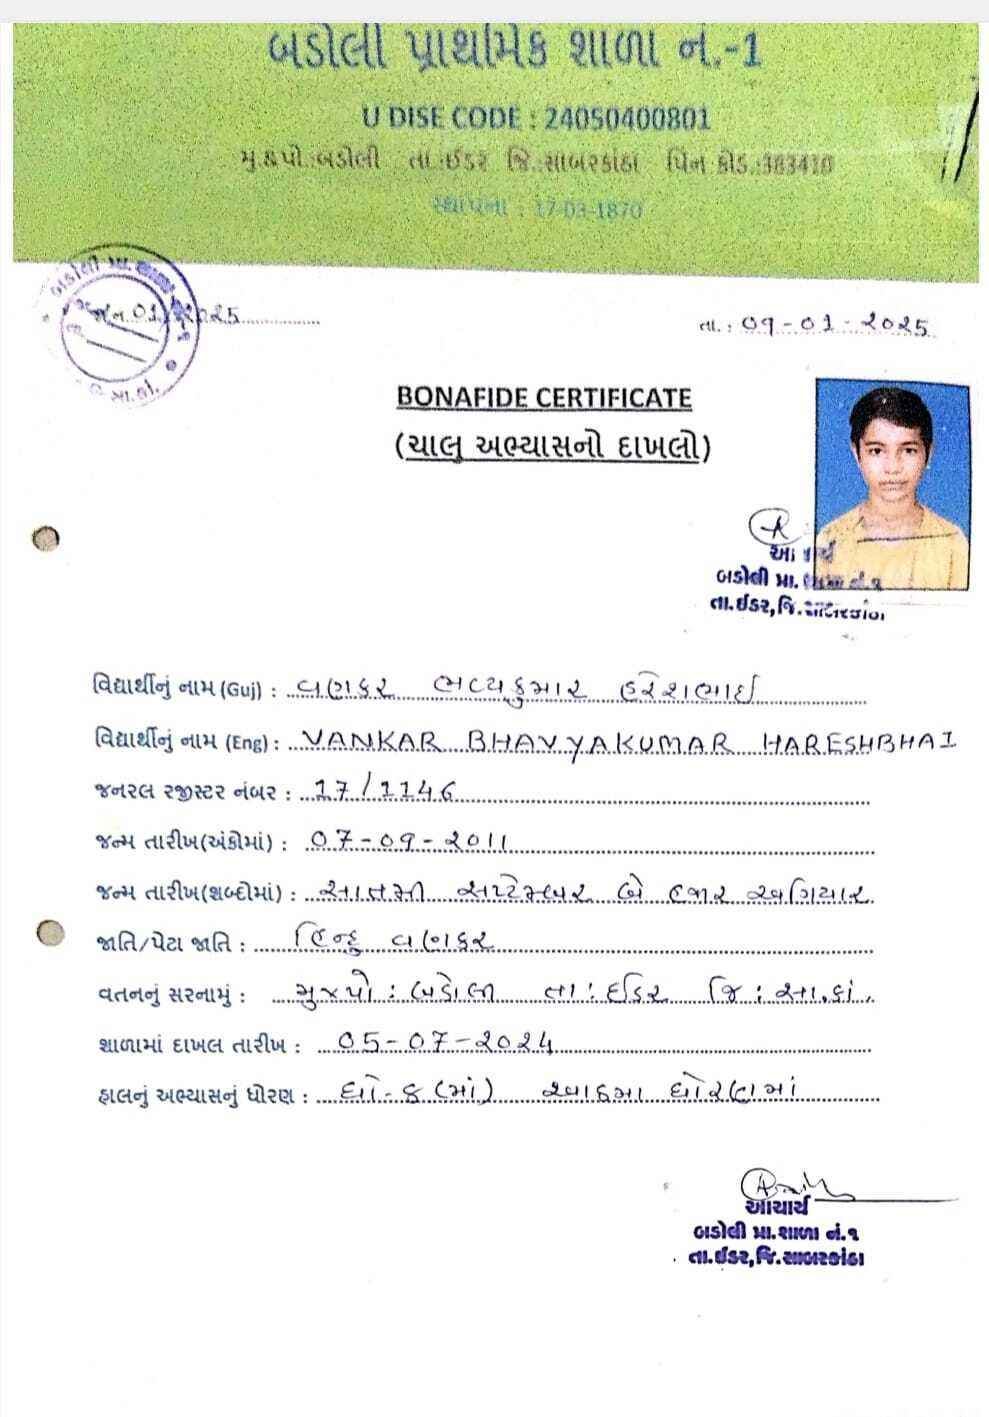 બડોલી પ્રાથમિક શાળા નં.-1
U DISE CODE : 24050400801
મુ.&પો.:બડોલી તા.:ઈડર જિ.:સાબરકાંઠા પિન કોડ.:383410
સ્થાપના : 17-03-1870
બડોલી પ્રા. શાળા
જા.નં.01/2025
સા.કાં.
તા. : 09-01-2025
BONAFIDE CERTIFICATE
(ચાલુ અભ્યાસનો દાખલો)
આચાર્ય
બડોલી પ્રા. શાળા નં.૧
તા.ઈડર,જિ.સાબરકાંઠા
વિદ્યાર્થીનું નામ (Guj) : વણકર ભવ્યકુમાર હરેશભાઈ
વિદ્યાર્થીનું નામ (Eng) : VANKAR BHAVYAKUMAR HARESHBHAI
જનરલ રજીસ્ટર નંબર : 17/1146
જન્મ તારીખ(અંકોમાં) : 07-09-2011
જન્મ તારીખ(શબ્દોમાં) : સાતમી સપ્ટેમ્બર બે હજાર અગિયાર
જાતિ/પેટા જાતિ : હિન્દુ વણકર
વતનનું સરનામું : મુ×પો : બડોલી તા : ઈડર જિ : સા.કાં.
શાળામાં દાખલ તારીખ : 05-07-2024
હાલનું અભ્યાસનું ધોરણ : ધો-૮(માં) આઠમા ધોરણમાં
આચાર્ય
બડોલી પ્રા.શાળા નં.૧
તા.ઈડર,જિ.સાબરકાંઠા